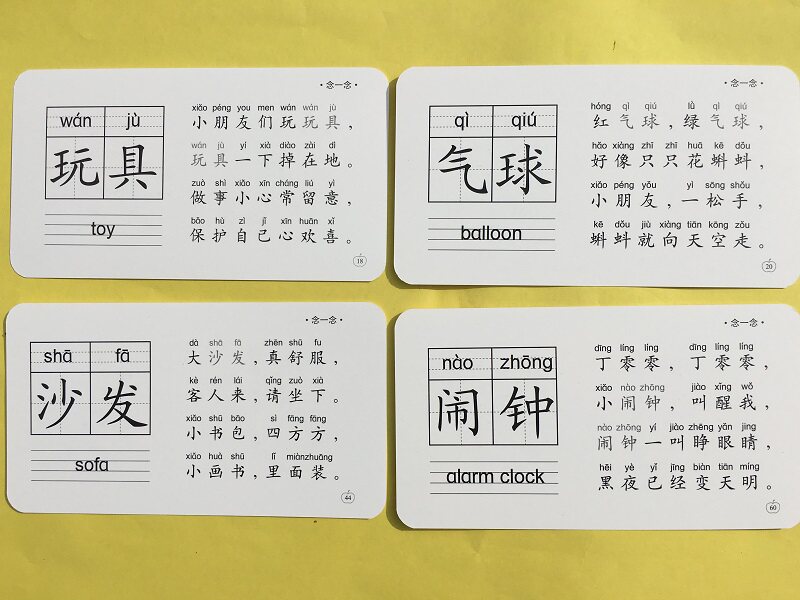 ·念一念·
wán jù
玩具
toy
xiǎo péng you men wán wán jù
小朋友们玩玩具，
wán jù yí xià diào zài dì
玩具一下掉在地。
zuò shì xiǎo xīn cháng liú yì
做事小心常留意，
bǎo hù zì jǐ xīn huān xǐ
保护自己心欢喜。
18
·念一念·
qì qiú
气球
balloon
hóng qì qiú lǜ qì qiú
红气球，绿气球，
hǎo xiàng zhī zhī huā kē dǒu
好像只只花蝌蚪，
xiǎo péng yǒu yì sōng shǒu
小朋友，一松手，
kē dǒu jiù xiàng tiān kōng zǒu
蝌蚪就向天空走。
20
·念一念·
shā fā
沙发
sofa
dà shā fā zhēn shū fu
大沙发，真舒服，
kè rén lái qǐng zuò xià
客人来，请坐下。
xiǎo shū bāo sì fāng fāng
小书包，四方方，
xiǎo huà shū lǐ miàn zhuāng
小画书，里面装。
44
·念一念·
nào zhōng
闹钟
alarm clock
dīng líng líng dīng líng líng
丁零零，丁零零，
xiǎo nào zhōng jiào xǐng wǒ
小闹钟，叫醒我，
nào zhōng yí jiào zhēng yǎn jing
闹钟一叫睁眼睛，
hēi yè yǐ jīng biàn tiān míng
黑夜已经变天明。
60